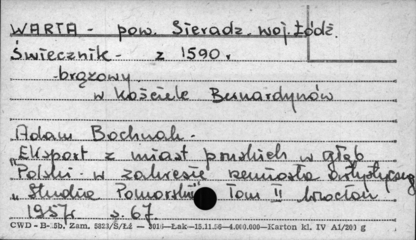 WARTA - pow. Sieradz. woj. Łódź.
Świecznik - z 1590 r
-brązowy.
w kościele Bernardynów
Adam Bochnak -
"Eksport z miast pruskich w głąb
Polski w zakresie rzemiosła artystyczneg
"Studia Pomorskie" Tom II Wrocław
1957r s. 67.
CWD - B- 5b, Zam. 5823/S/Łd — 2010—Łak—15.11.56—4.000.000—Karton kl. IV A1/200 g